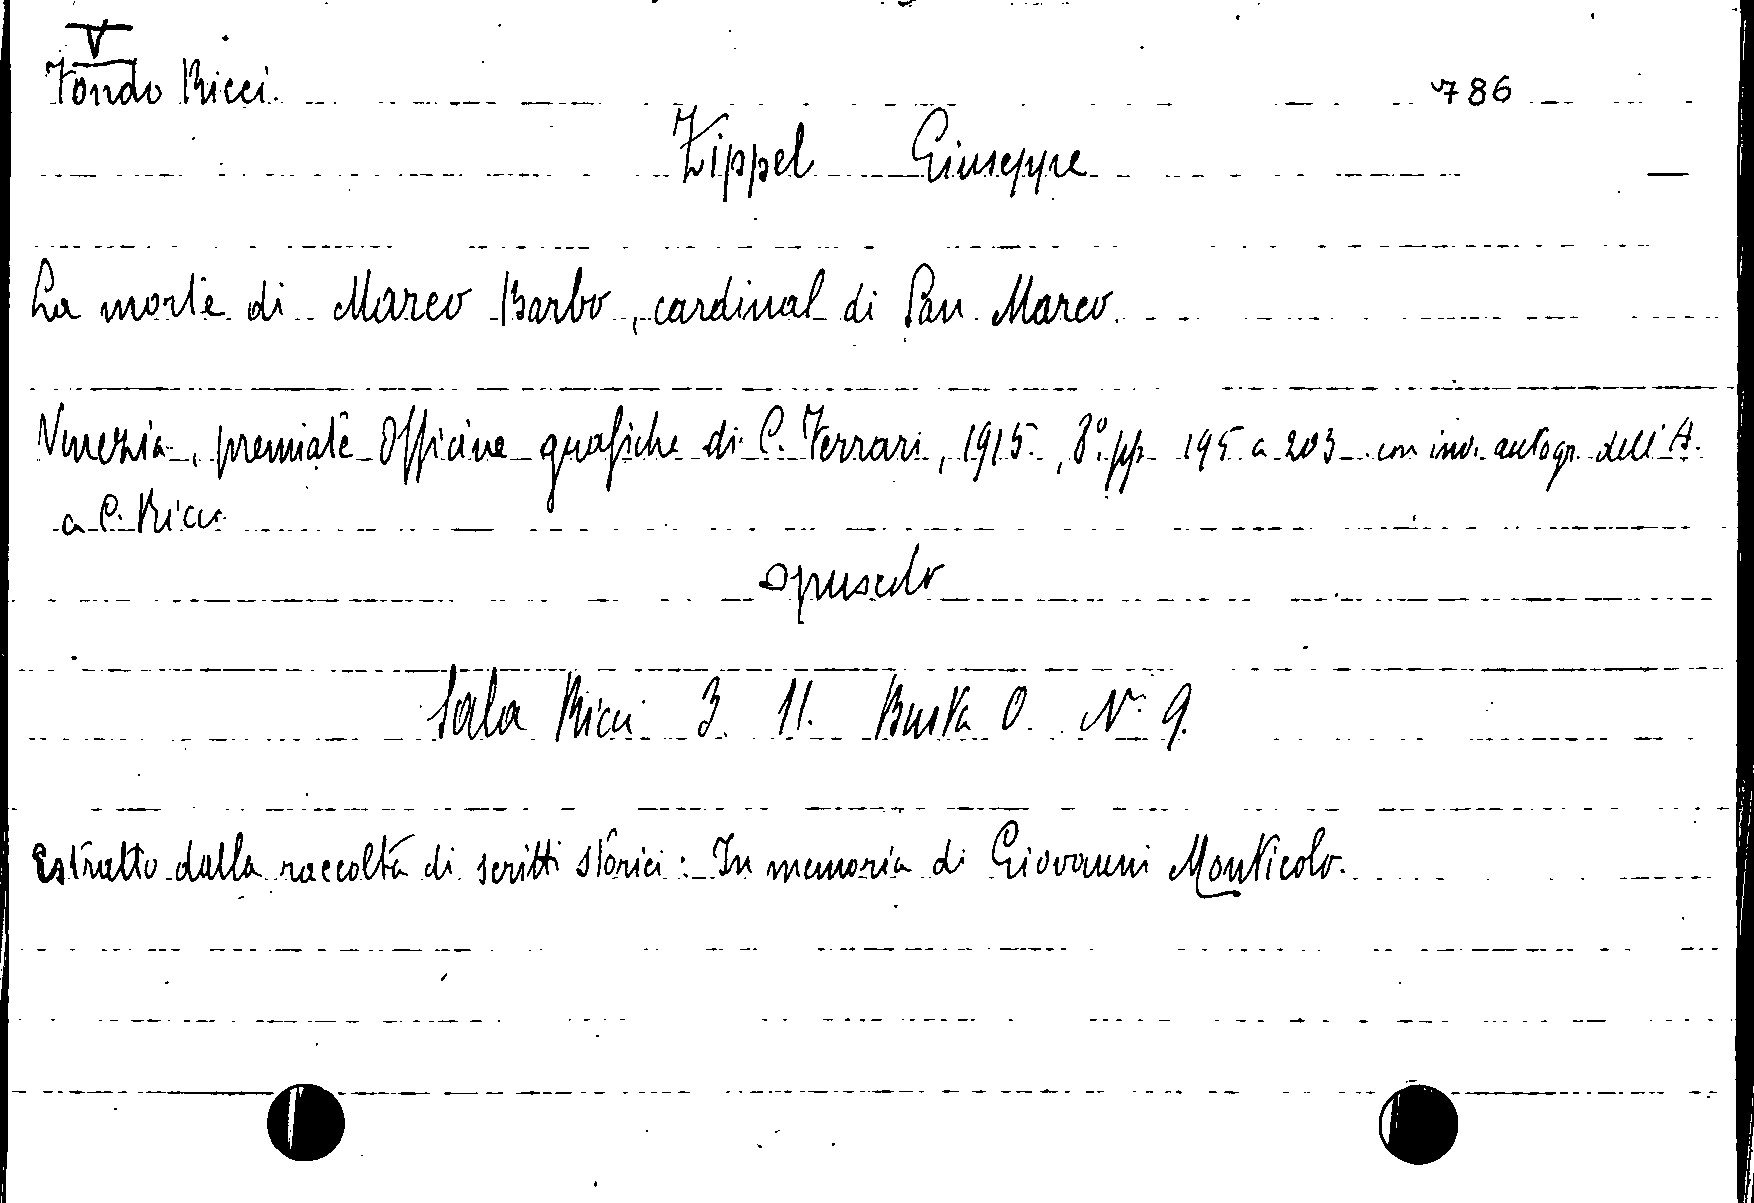 V
Fondo Ricci. 786
Zippel Giuseppe
La morte di Marco Barbo, cardinal di San Marco.
Venezia, premiate Officine grafiche di C. Ferrari, 1915, 8° pp. 195 a 203 con inv. autogr. dell'A.
a C. Ricci
opuscolo
Sala Ricci 3. 11. Busta O. N° 9.
Estratto dalla raccolta di scritti storici: In memoria di Giovanni Monticolo.